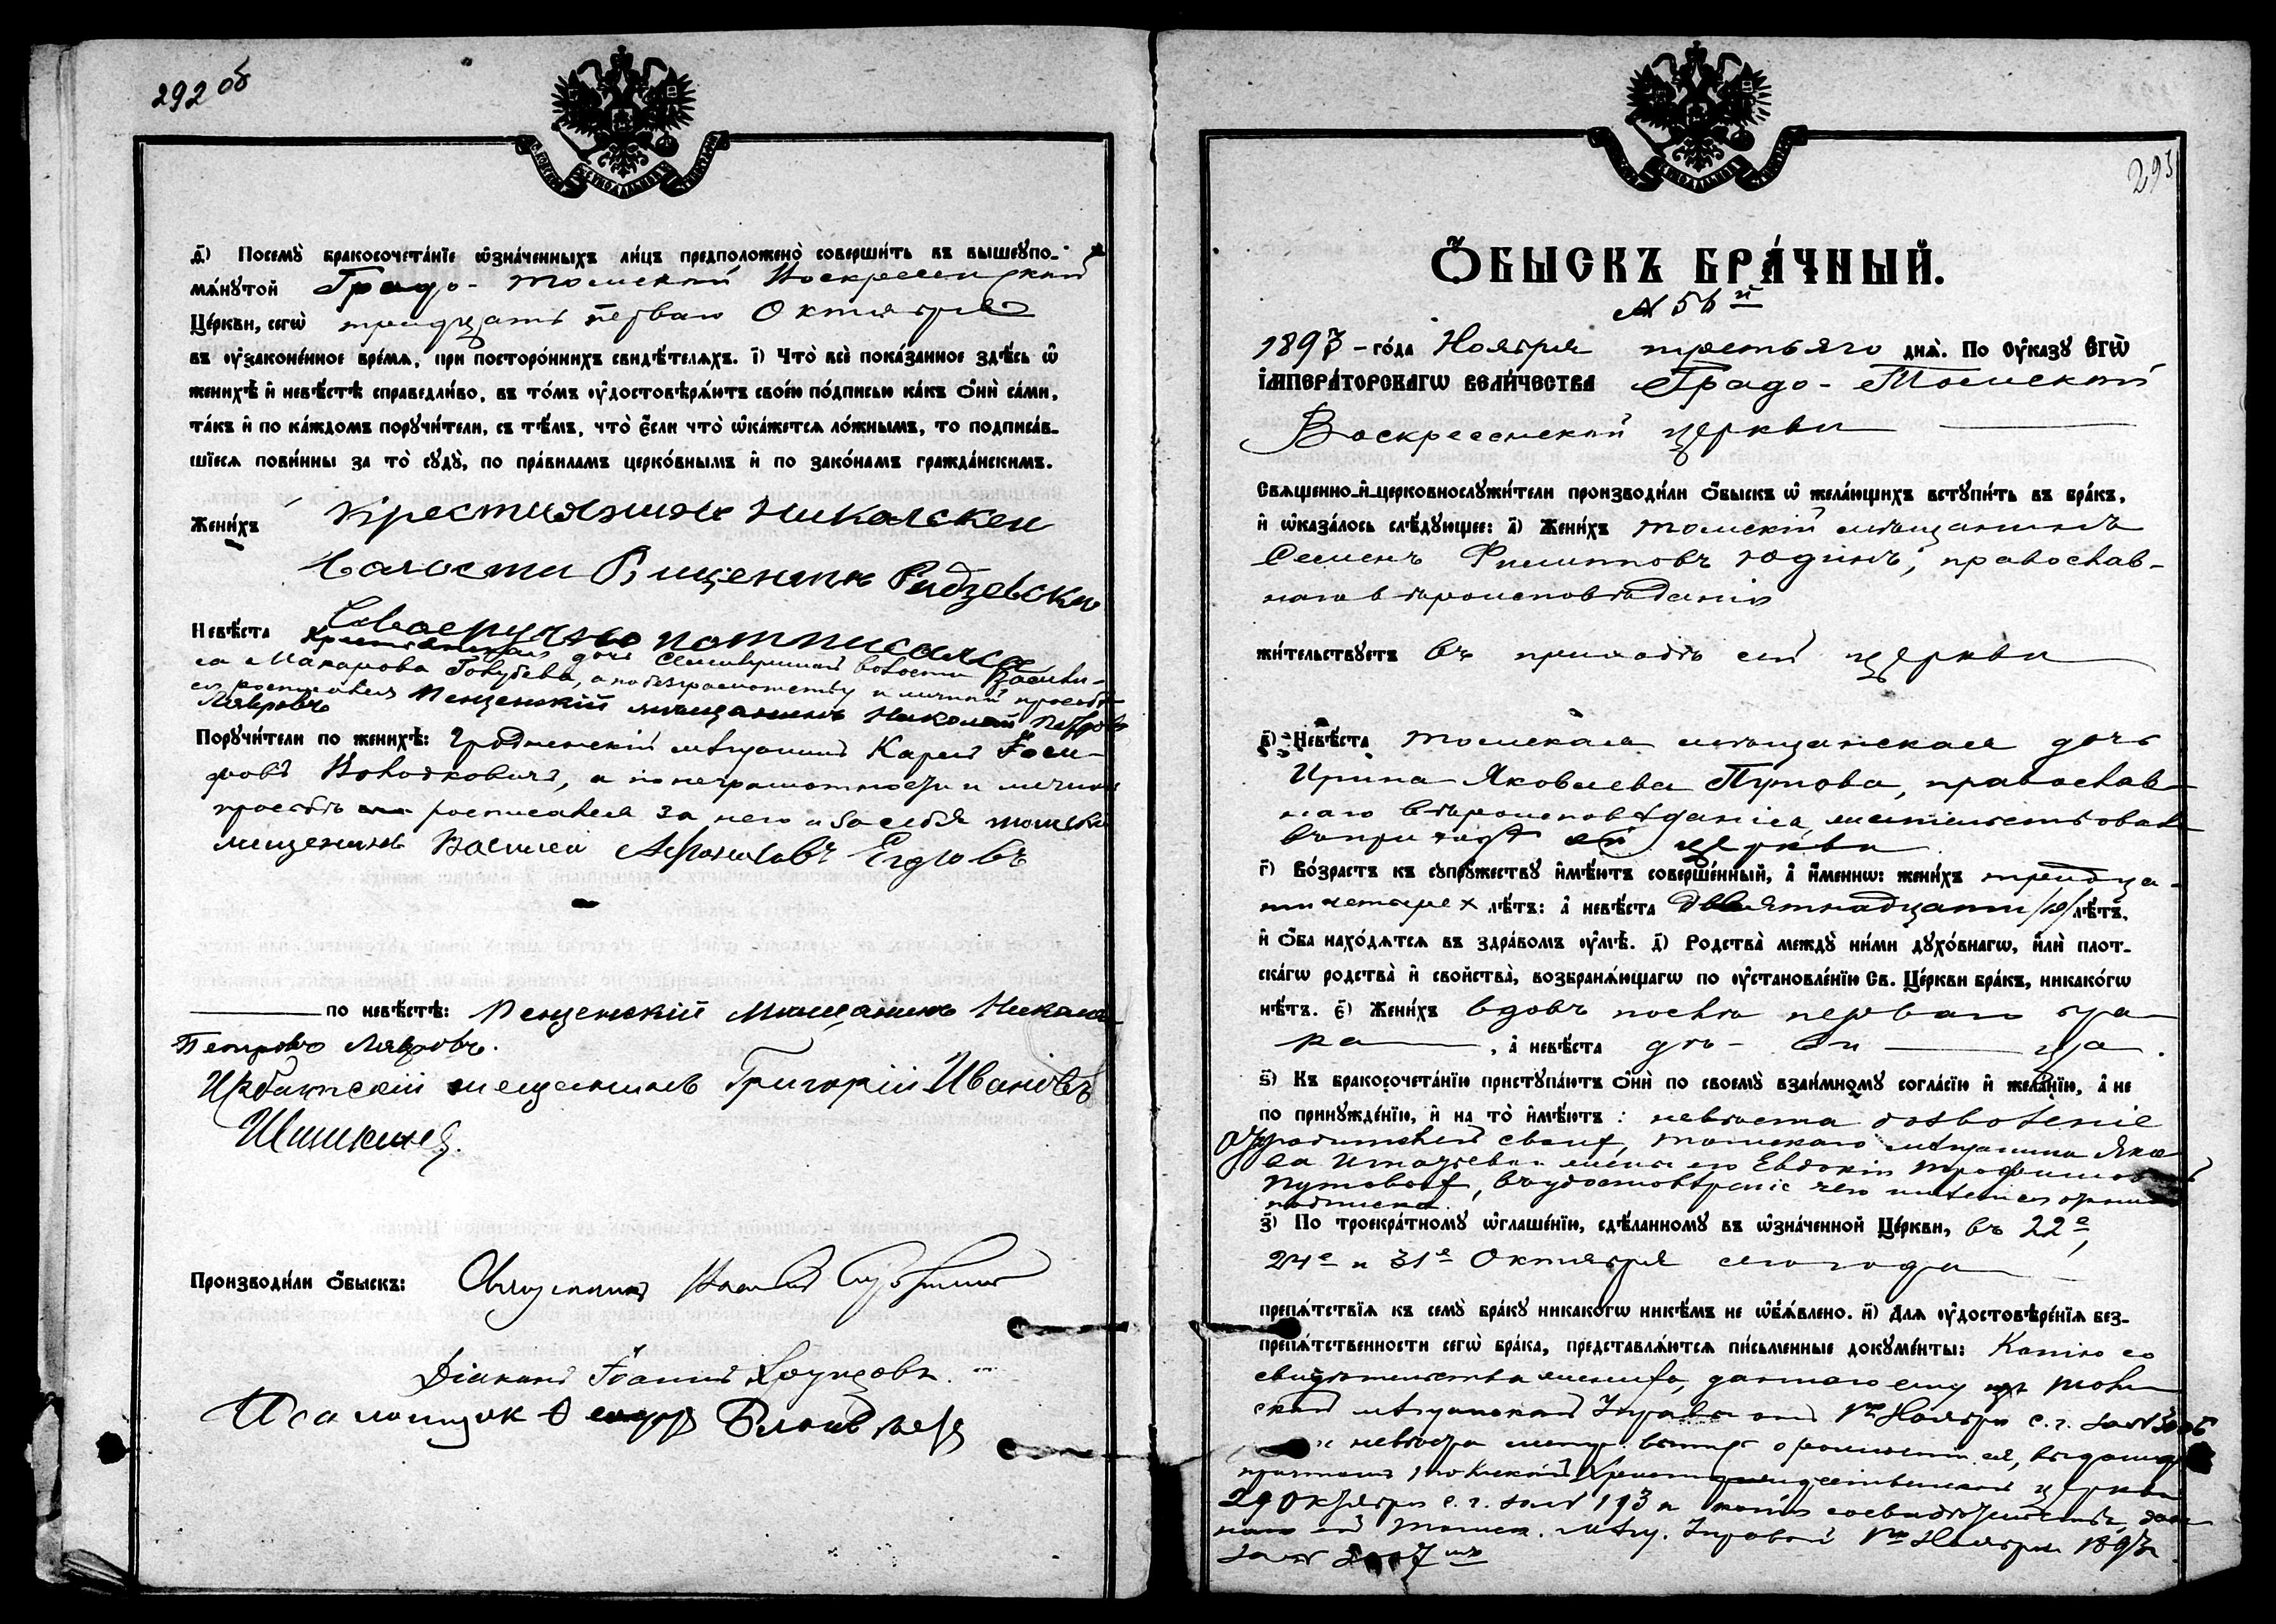 292 об
д҃) Посемꙋ̀ бракосочета́нїе ѡ҆зна́ченныхъ ли́цъ предположено̀ соверши́ть въ вышеꙋпо-
мѧ́нꙋтой Градо-Томской Воскресенской
Це́ркви, сегѡ̀ тридцать перваго Октября
въ ᲂу҆законе́нное вре́мѧ, при посторо́ннихъ свидѣ́телѧхъ. і҃) Что̀ всѐ пока́занное здѣ́сь ѡ҆
женихѣ̀ и҆ невѣ́стѣ справедли́во, въ то́мъ ᲂу҆достовѣрѧ́ютъ свое́ю по́дписью ка́къ ѻ҆нѝ са́ми,
та́къ и҆ по ка́ждомъ порꙋчи́тели, съ тѣ́мъ, что̀ є҆́сли что̀ ѡ҆ка́жетсѧ ло́жнымъ, то подписа́в-
шїесѧ пови́нны за то̀ сꙋдꙋ̀, по пра́виламъ церко́внымъ и҆ по зако́намъ гражда́нскимъ.
Жени́хъ Крестиянинъ Николскеи
Валости Вицентии Ридзевски
Невѣ́ста Своеручно потписался
Крестьянская дочь волости Васили-
са Макарова Голубева, а по безграмотству и личной просьбѣ
ея росписался Пензенскій мѣщанинъ Николай Петровъ
Лавровъ
Порꙋчи́тели по женихѣ̀: Гродненскій мѣщанинъ Карлъ Іоси-
фовъ Володковичъ, а по неграмотности и личной
просьбѣ росписался за него и за себя томски
мещенинъ Василеи
по невѣ́стѣ: Пензенскій Мѣщанинъ Никола
Петровъ Лавровъ.
Ирбитскій мещанинъ Григорій Ивановъ
Шишкинъ.
Производи́ли Ѻ҆́быскъ: Священникъ
Діаконъ Іоаннъ
Псаломщик
293
Ѻ҆́БЫСКЪ БРА́ЧНЫЙ.
№ 56й
1893 – го́да Ноября третьяго днѧ̀. По Оу҆ка́зꙋ Є҆гѡ̀
І҆мпера́торскагѡ Вели́чества Градо-Томской
Воскресенской церкви
Свѧще́нно-и҆-церковнослꙋжи́тели производи́ли ѻ҆́быскъ ѡ҆ жела́ющихъ встꙋпи́ть въ бра́къ,
и҆ ѡ҆каза́лось слѣ́дꙋющее: а҃) Жени́хъ томскій мѣщанинъ
Семенъ Филипповъ Юдинъ, православ-
наго вѣроисповѣданія
жи́тельствꙋетъ въ приходѣ сей церкви
в҃) Невѣ́ста томская мѣщанская дочь
Ирина Яковлева Путова, православ
наго вѣроисповѣданія, жительствовал
въ приходѣ сей церкви
г҃) Во́зрастъ къ сꙋпрꙋ́жествꙋ и҆мѣ́ютъ соверше́нный, а҆ и҆́меннѡ: жени́хъ тридца-
ти четырех лѣ́тъ: а҆ невѣ́ста девятнадцати /19/ лѣ́тъ,
и҆ ѻ҆́ба нахо́дѧтсѧ въ здра́вомъ ᲂу҆мѣ̀. д҃) Родства̀ междꙋ̀ ни́ми дꙋхо́внагѡ, и҆лѝ плот-
ска́гѡ родства̀ и҆ свойства̀, возбранѧ́ющагѡ по ᲂу҆становле́нїю Св. Це́ркви бра́къ, никако́гѡ
нѣ́тъ. є҃) Жени́хъ вдовъ послѣ перваго бра-
ка, а҆ невѣ́ста дѣ- ви- ца.
ѕ҃) Къ бракосочета́нїю пристꙋпа́ютъ ѻ҆нѝ по своемꙋ̀ взаи́мномꙋ согла́сїю и҆ жела́нїю, а҆ не
по принꙋжде́нїю, и҆ на то̀ и҆мѣ́ютъ: невѣста дозволеніе
родителей своих, томскаго мѣщанина Яко
ва и жены его Евдокіи Трофимовой
Путовых, въ удостовѣреніе чего
подписка.
з҃) По троекра́тномꙋ ѡ҆глаше́нїю, сдѣ́ланномꙋ въ ѡ҆зна́ченной Це́ркви, въ 22е,
24е и 31е Октября сего года
препѧ́тствїѧ къ семꙋ̀ бра́кꙋ никако́гѡ никѣ́мъ не ѡ҆б̾ѧ́влено. и҃) Длѧ ᲂу҆достовѣре́нїѧ без-
препѧ́тственности сегѡ̀ бра́ка, представлѧ́ютсѧ пи́сьменные докꙋме́нты: Копію со
свидѣтельства жениха, даннаго ему изъ Том
ской мѣщанской Управы отъ 1го Ноября с. г. за №
и невѣста выданную
причтомъ церкви
29 Октября с. г. за № 193 и копію со свидѣтельства, дан
наго изъ Томск. мѣщ. Управой 1го Ноября 1893
за №